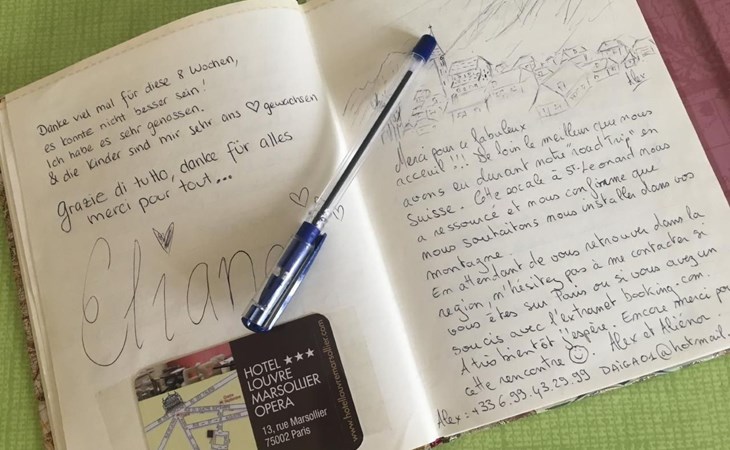 Danke viel mal für diese 8 Wochen,
es konte nicht besser sein!
Ich habe es sehr genossen.
& die Kinder sind mir sehr ans ♡ gewachsen
Grazie di tutto, danke für alles
merci pour tout...
Eliane
HOTEL ★★★
LOUVRE
MARSOLLIER
OPERA
13, rue Marsollier
75002 Paris
www.hotellouvremarsollier.com
Alex
Merci pour ce fabuleux
acceuil!!! De loin le meilleur que nous
avons eu durant notre "road Trip" en
Suisse. Cette escale à St-Leonard nous
a ressourcé et nous confirme que
nous souhaitons nous installer dans vos
montagne.
En attendant de vous retrouver dans la
region, n'hésitez pas à me contacter si
vous êtes sur Paris ou si vous avez un
soucis avec l'extranet booking.com.
A très bientôt j'espère. Encore merci pour
cette rencontre ☺. Alex et Aliénor.
Alex: +336.99.43.29.99 DAIGA01@hotmail.